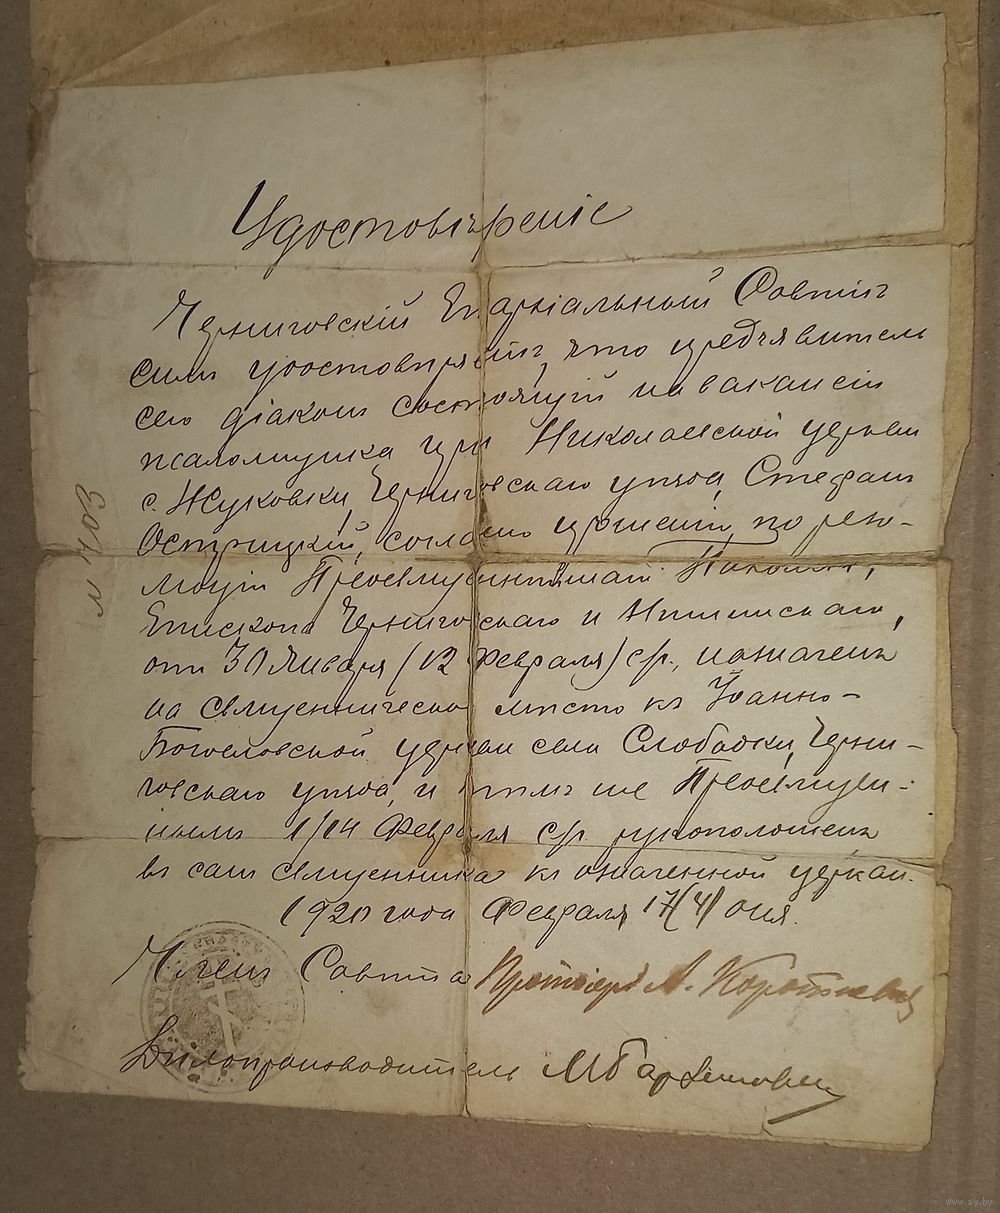 Удостовѣреніе
Черниговскій Епархіальный Совѣтъ
симъ удостовѣряетъ, что предъявитель
сего діаконъ состоящій на вакансіи
псаломщика при Николаевской церкви
с. Жуковки, Черниговскаго уѣзда, Стефанъ
Острицкій, согласно прошенію, по резо-
люціи Преосвященнѣйшаго Пахомія,
Епископа Черниговскаго и Нѣжинскаго,
отъ 30 Января (12 Февраля) с/г., назначенъ
на священническое мѣсто къ Іоанно-
Богословской церкви села Слободки, Черни-
говскаго уѣзда, и тѣмъ же Преосвящен-
нымъ 1/14 Февраля с/г рукоположенъ
въ санъ священника къ означенной церкви.
1920 года Февраля 17(4) дня.
Членъ Совѣта Протоіерей А.
Дѣлопроизводитель
www.ay.by